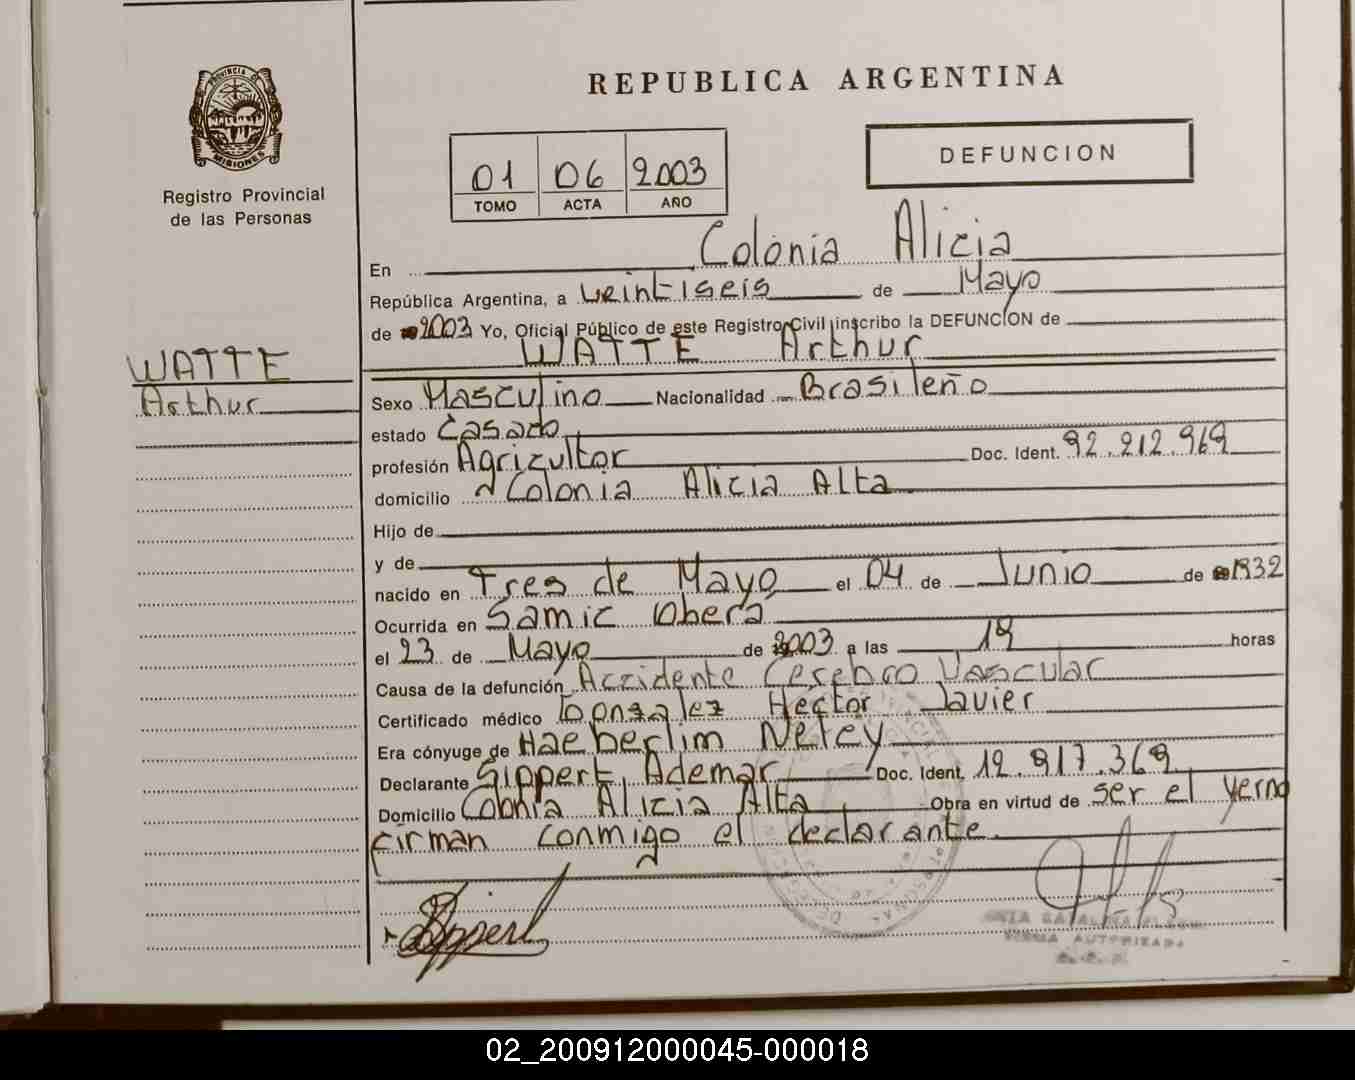 PROVINCIA DE
MISIONES
Registro Provincial
de las Personas
REPUBLICA ARGENTINA
01 06 2003
TOMO ACTA AÑO
DEFUNCION
En Colonia Alicia
República Argentina, a veintiseis de Mayo
de 2003 Yo, Oficial Público de este Registro Civil inscribo la DEFUNCION de
WATTE Arthur
WATTE
Arthur
Sexo Masculino Nacionalidad Brasileño
estado Casado
profesión Agricultor Doc. Ident. 92.212.969
domicilio Colonia Alicia Alta
Hijo de
y de
nacido en Tres de Mayo el 04 de Junio de 1932
Ocurrida en Samic Obera
el 23 de Mayo de 2003 a las 19 horas
Causa de la defunción Accidente Cerebro Vascular
Certificado médico Gonzalez Héctor Javier
Era cónyuge de Haeberlim Neley
Declarante Sippert, Ademar Doc. Ident. 12.917.369
Domicilio Colonia Alicia Alta Obra en virtud de ser el yerno
firman conmigo el declarante.
Sippert
FIRMA AUTORIZADA
02_200912000045-000018